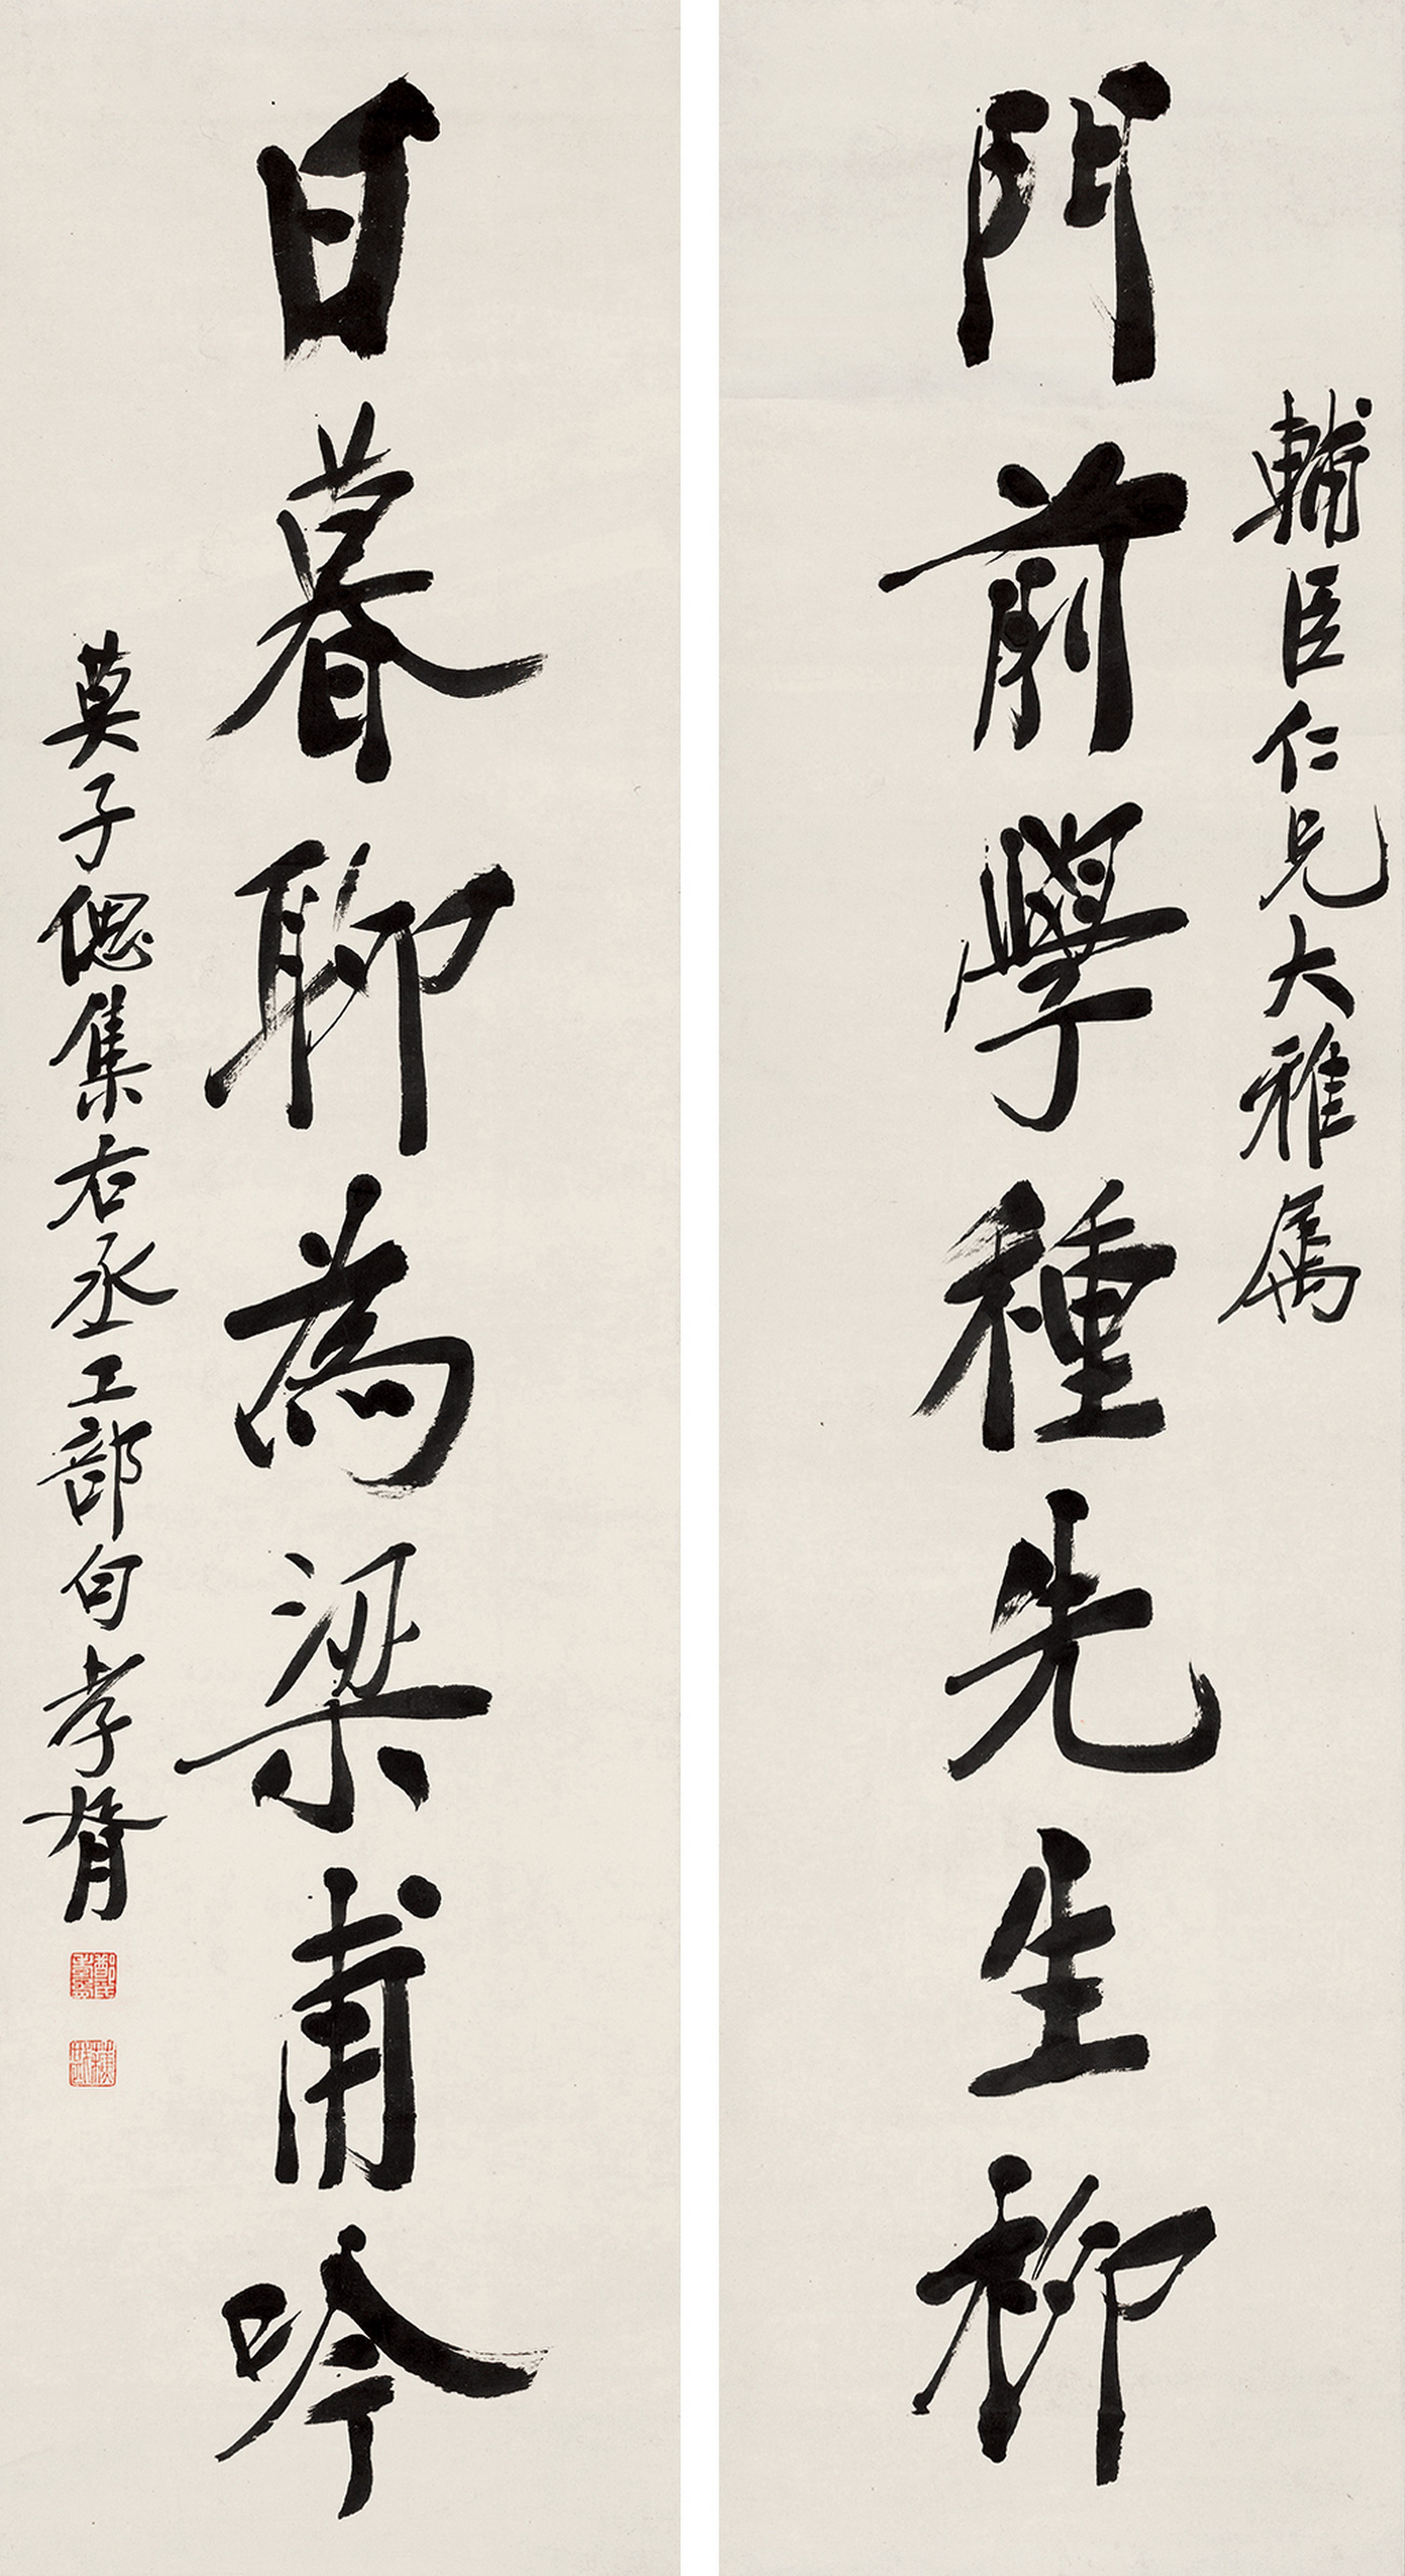 輔臣仁兄大雅属
門前學種先生柳
日暮聊為梁甫吟
莫子偲集右丞工部句孝胥